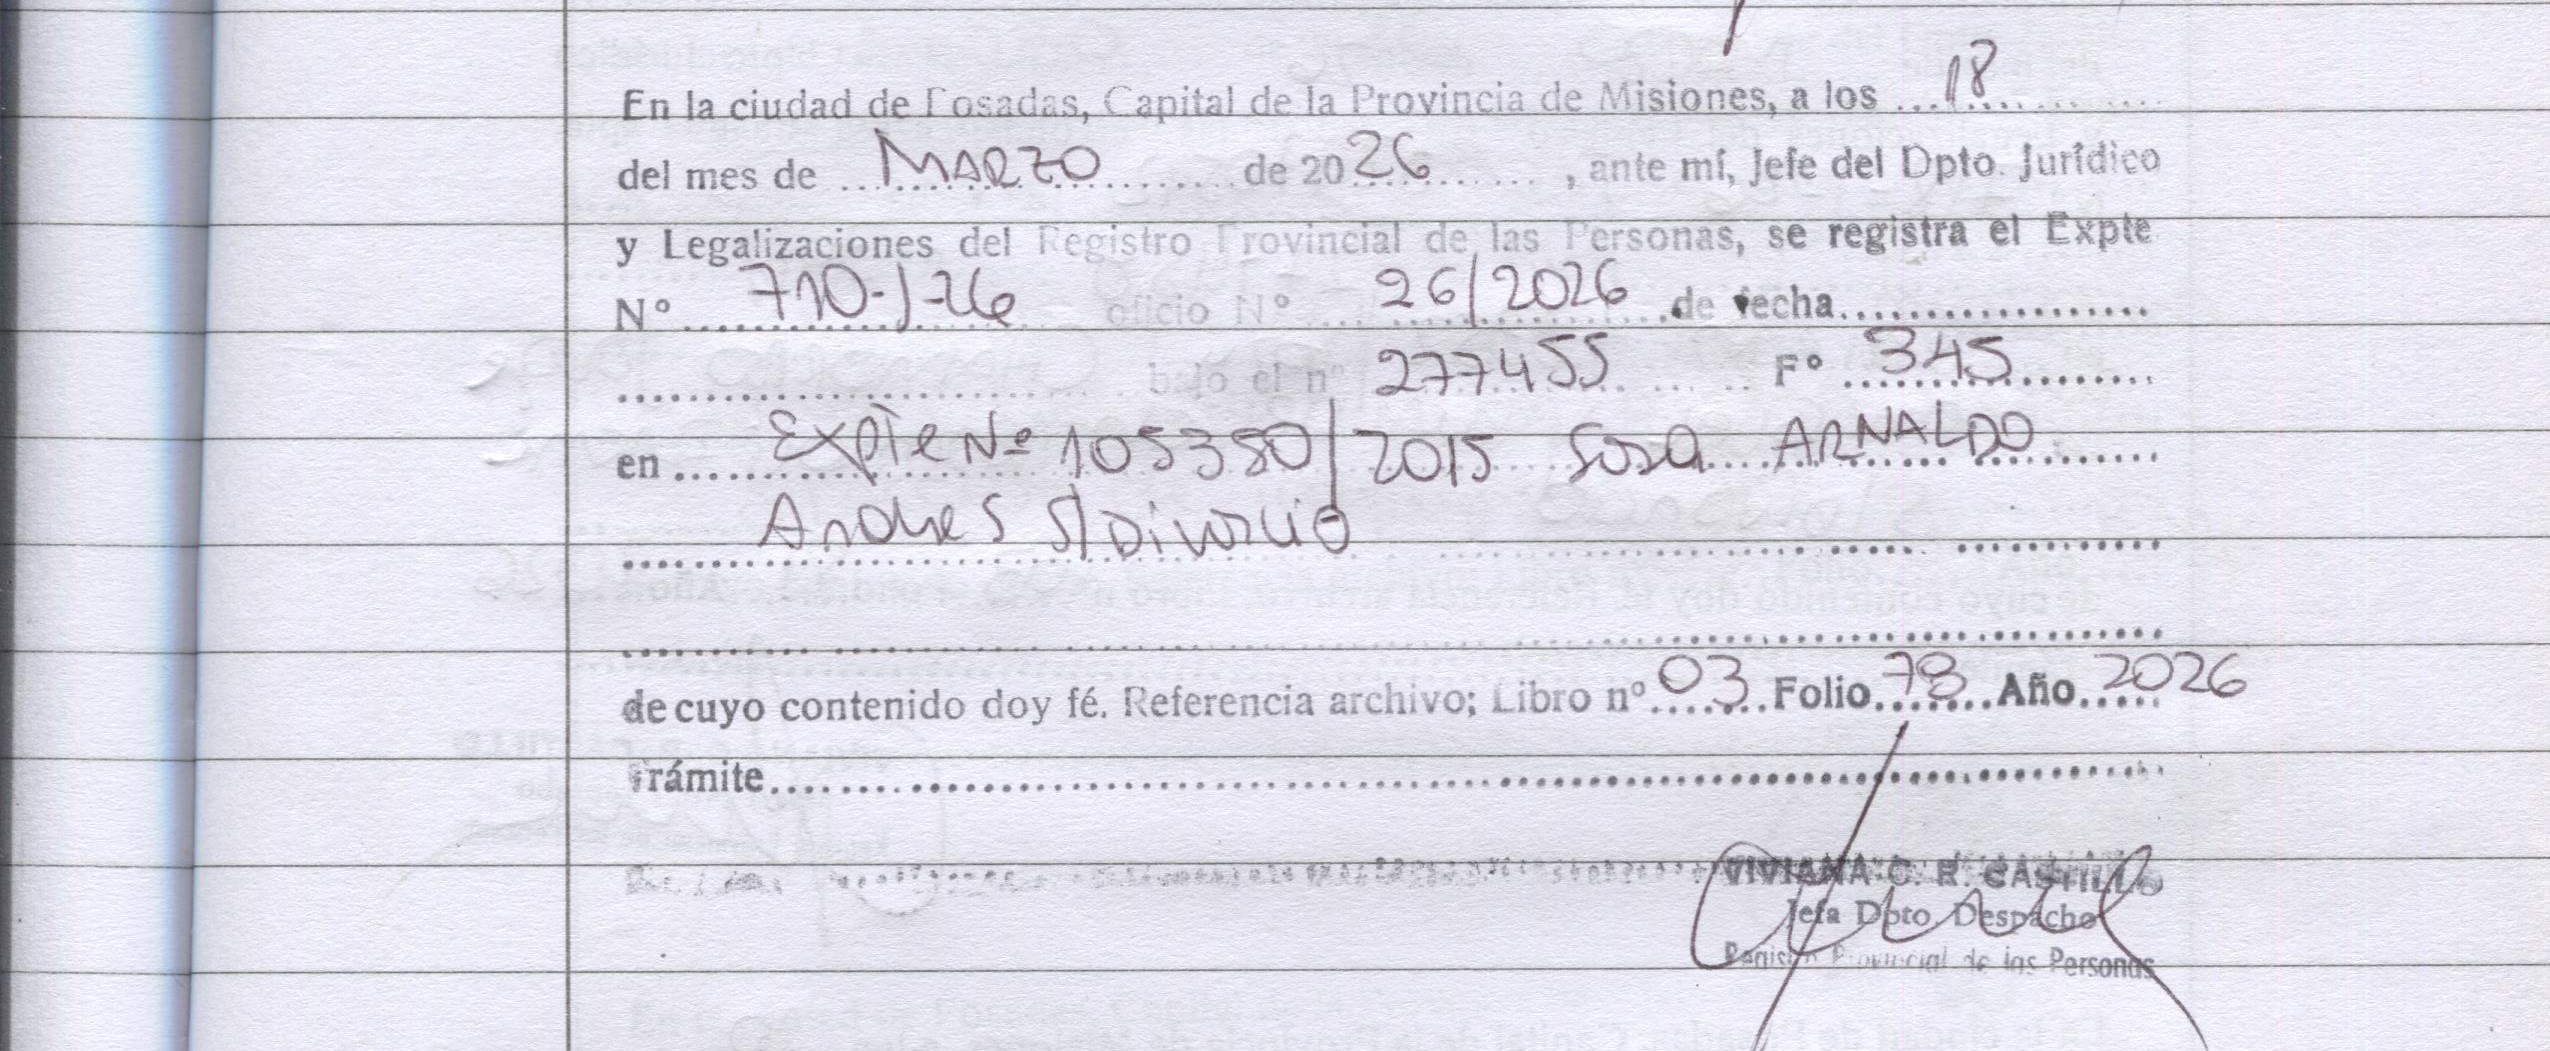 En la ciudad de Posadas, Capital de la Provincia de Misiones, a los ...18...
del mes de ...MARZO... de 2026..., ante mí, Jefe del Dpto. Jurídico
y Legalizaciones del Registro Provincial de las Personas, se registra el Expte
Nº ...710-J-26 oficio Nº ...26/2026 de fecha...
... bajo el nº 277455 ... Fº ...345...
en ...Expte Nº 105380/2015 Sosa ARNALDO...
Andres S/Divorcio
de cuyo contenido doy fé. Referencia archivo; Libro nº...03...Folio...78...Año...2026
Trámite...
VIVIANA C. R. CASTILLO
Jefa Dpto Despacho
Registro Provincial de las Personas